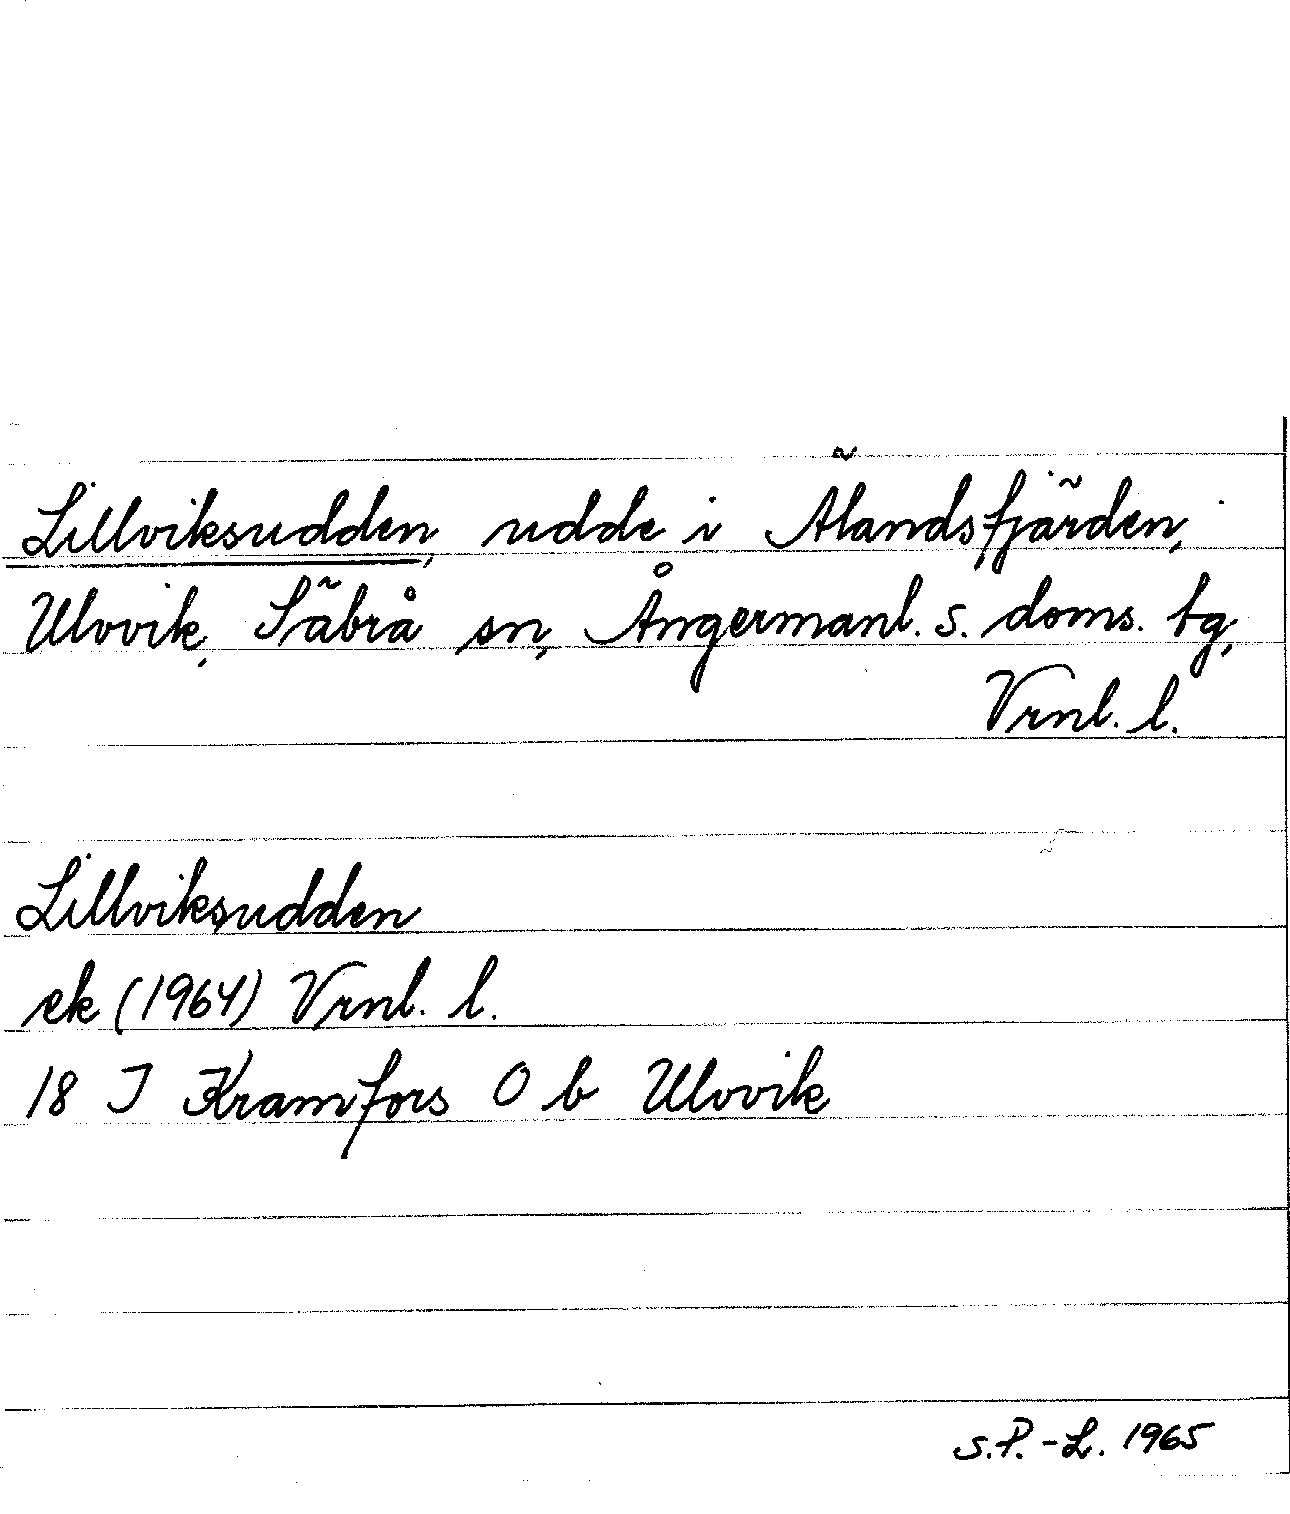 Lillviksudden, udde i Älandsfjärden,
Ulvvik, Säbrå sn, Ångermanl. s. doms. tg,
Vrnl. l.
Lillviksudden
ek (1964) Vrnl. l.
18 I Kramfors O b Ulvvik
S.P.-L. 1965